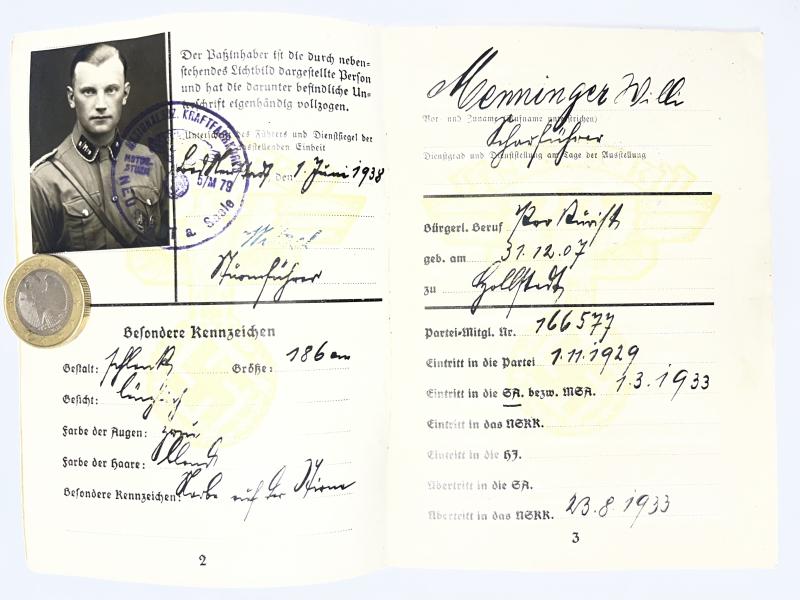 Der Paßinhaber ist die durch neben-
stehendes Lichtbild dargestellte Person
und hat die darunter befindliche Un-
terschrift eigenhändig vollzogen.
Unterschrift des Führers und Dienstsiegel der
ausstellenden Einheit
den 1. Juni 1938
Sturmführer
NATIONALSOZ. KRAFTFAHRKORPS
MOTOR-
STURM
5/M 79
a. Saale
Besondere Kennzeichen
Gestalt: schlank Größe: 186 cm
Gesicht: länglich
Farbe der Augen: grau
Farbe der Haare: blond
Besondere Kennzeichen: Narbe auf der Stirne
2
Menninger Willi
Vor- und Zuname (Rufname unterstreichen)
Scharführer
Dienstgrad und Dienststellung am Tage der Ausstellung
Bürgerl. Beruf Prokurist
geb. am 31.12.07
zu Hollstadt
Partei-Mitgl. Nr. 166577
Eintritt in die Partei 1.11.1929
Eintritt in die SA. bezw. MSA. 1.3.1933
Eintritt in das NSKK.
Eintritt in die HJ.
Übertritt in die SA.
Übertritt in das NSKK. 23.8.1933
3